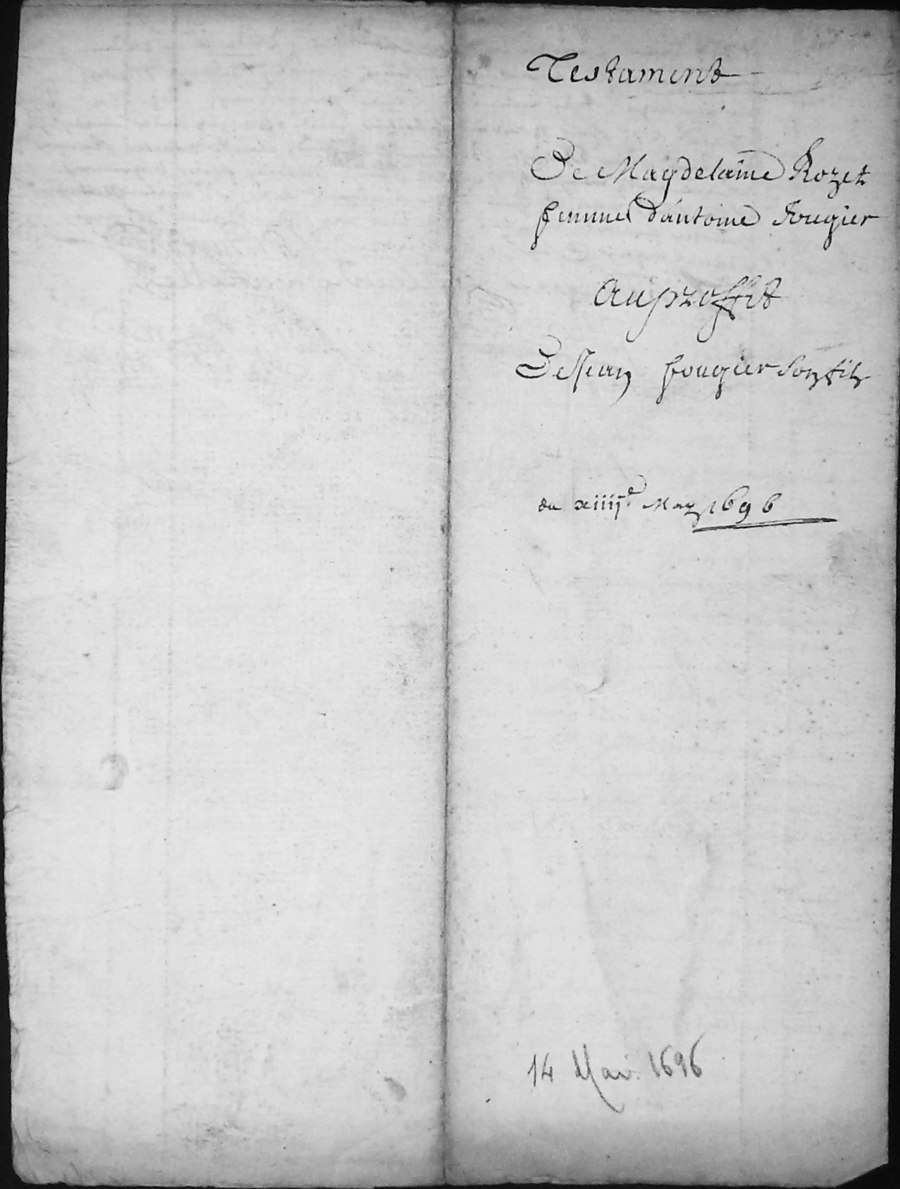 Testament
De Magdelaine Rozet
femme d'antoine Fougier
Au proffit
De Jean fougier son filz
du xiiiie May 1696
14 Mai 1696